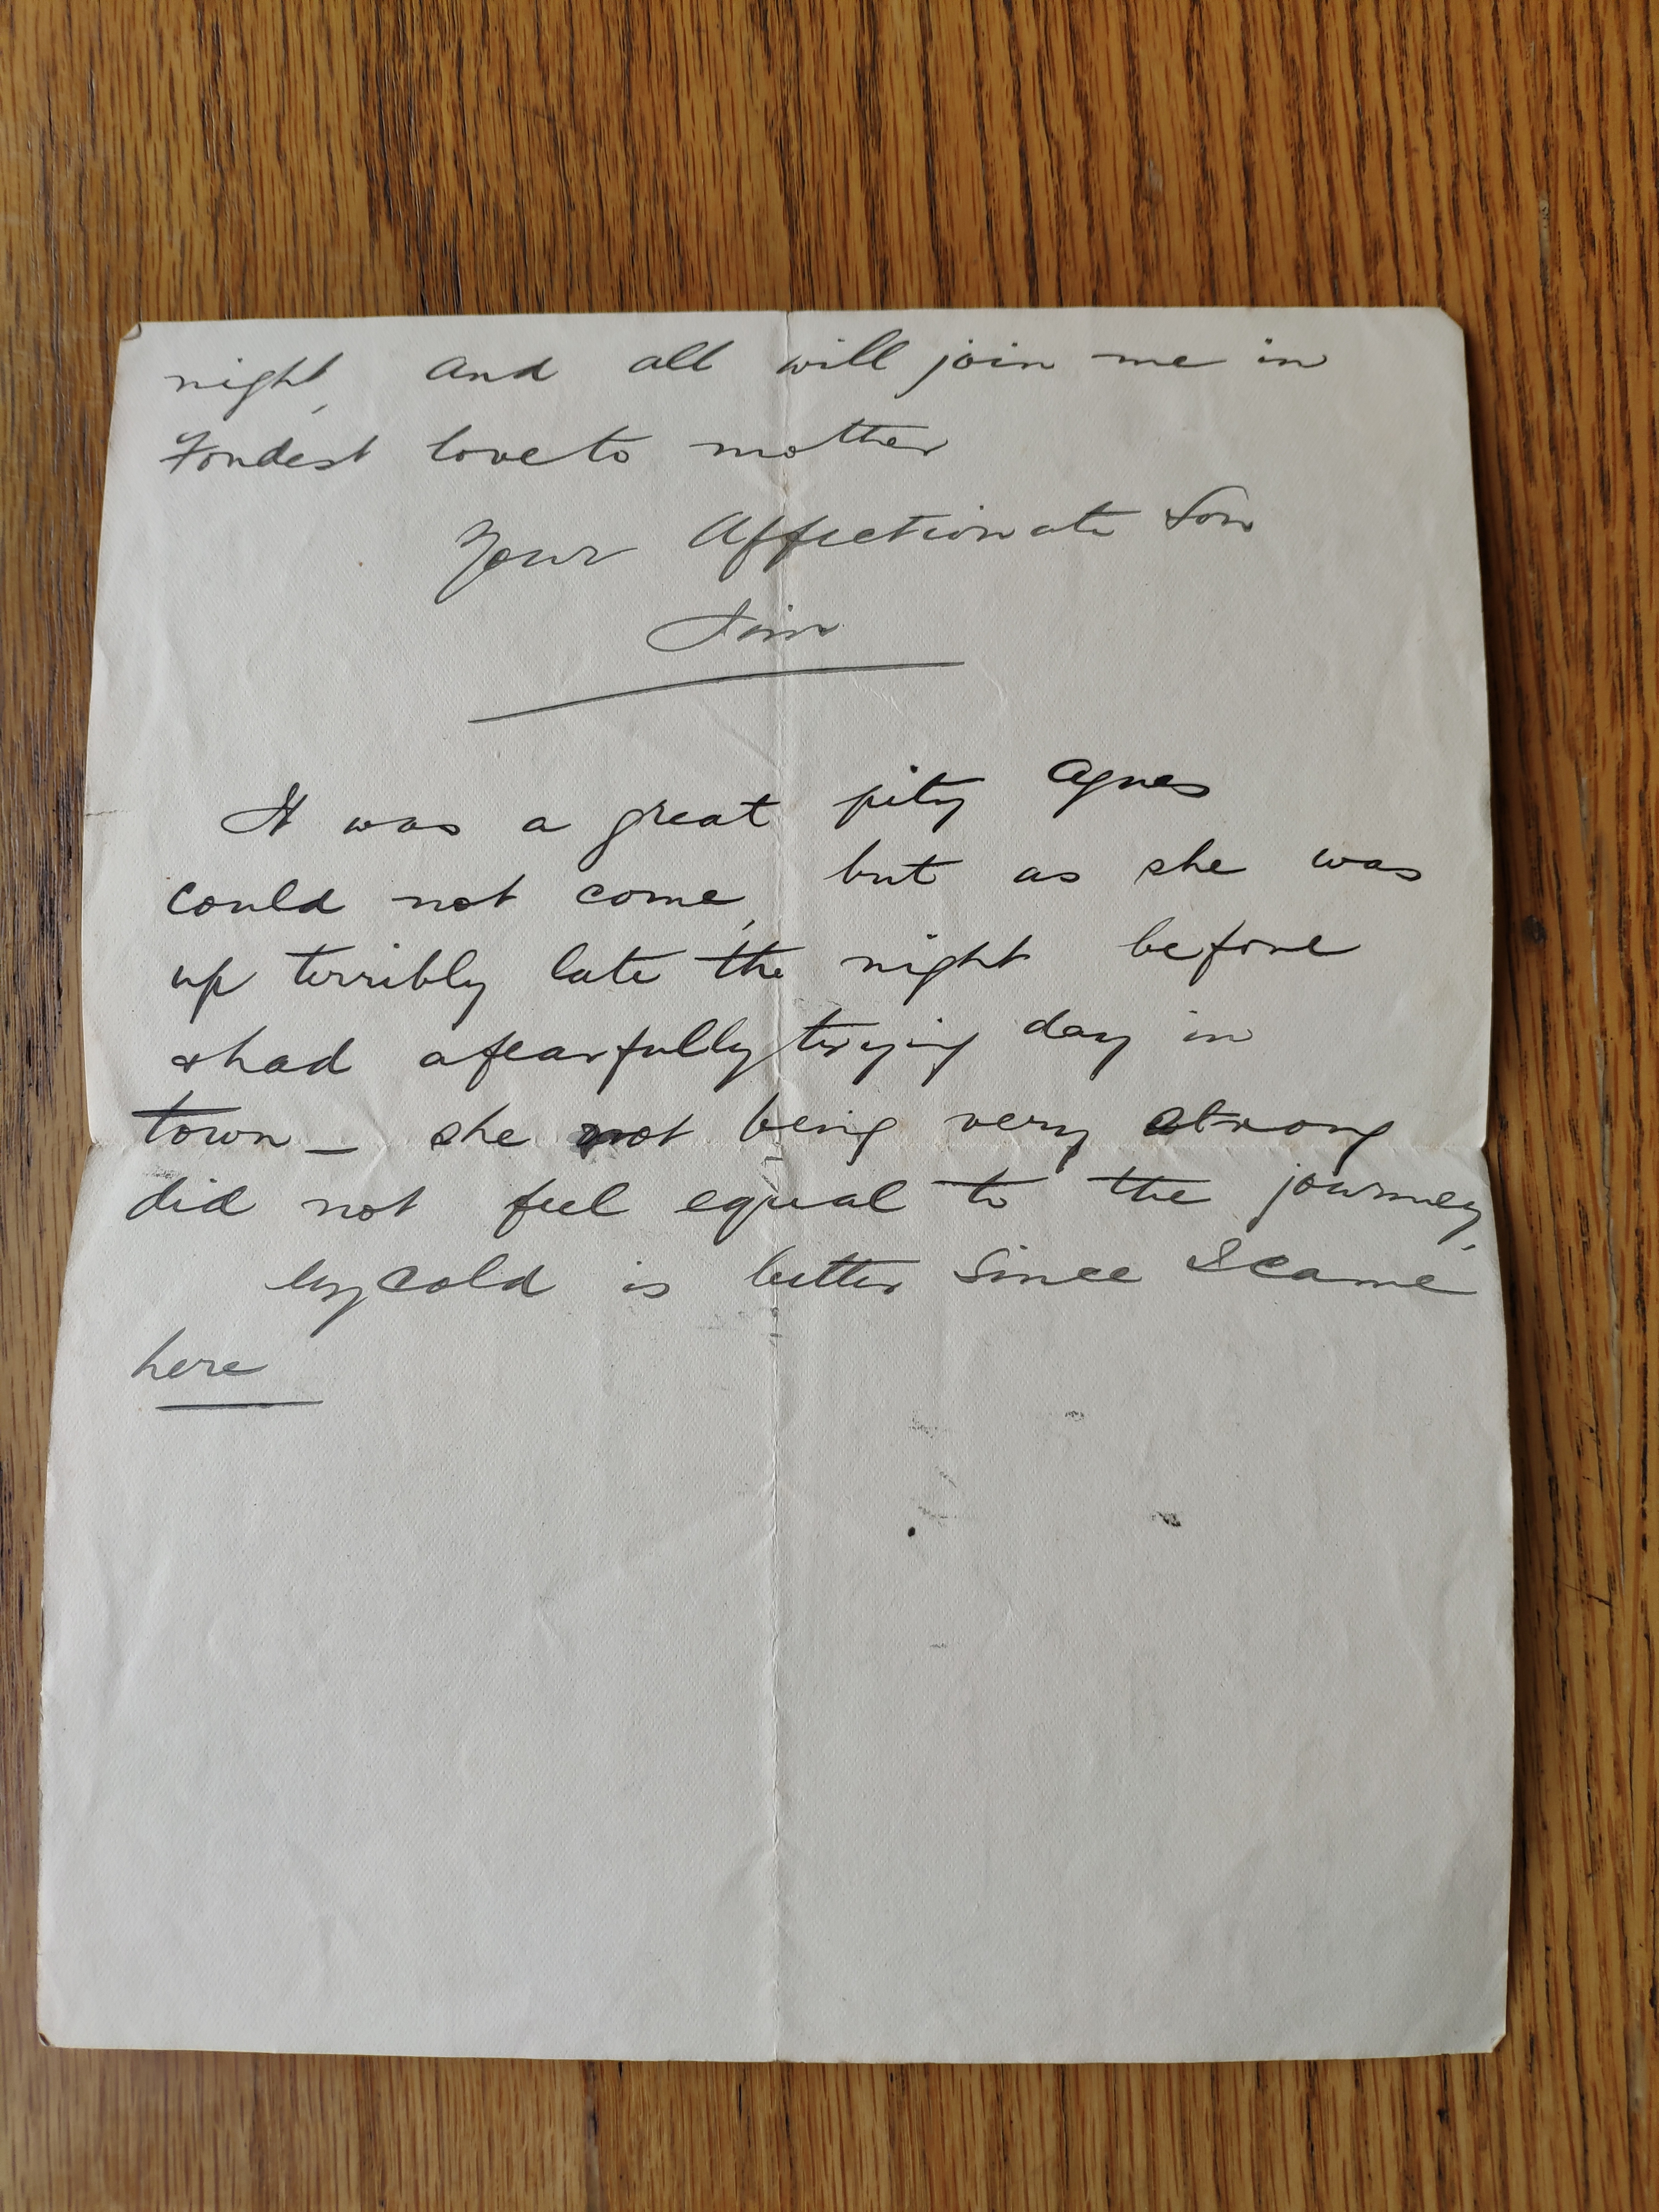 night, and all will join me in
Fondest love to mother
Your Affectionate Son
Jim
It was a great pity Agnes
could not come, but as she was
up terribly late the night before
& had a fearfully trying day in
town _ she not being very strong
did not feel equal to the journey,
My cold is better since I came
here